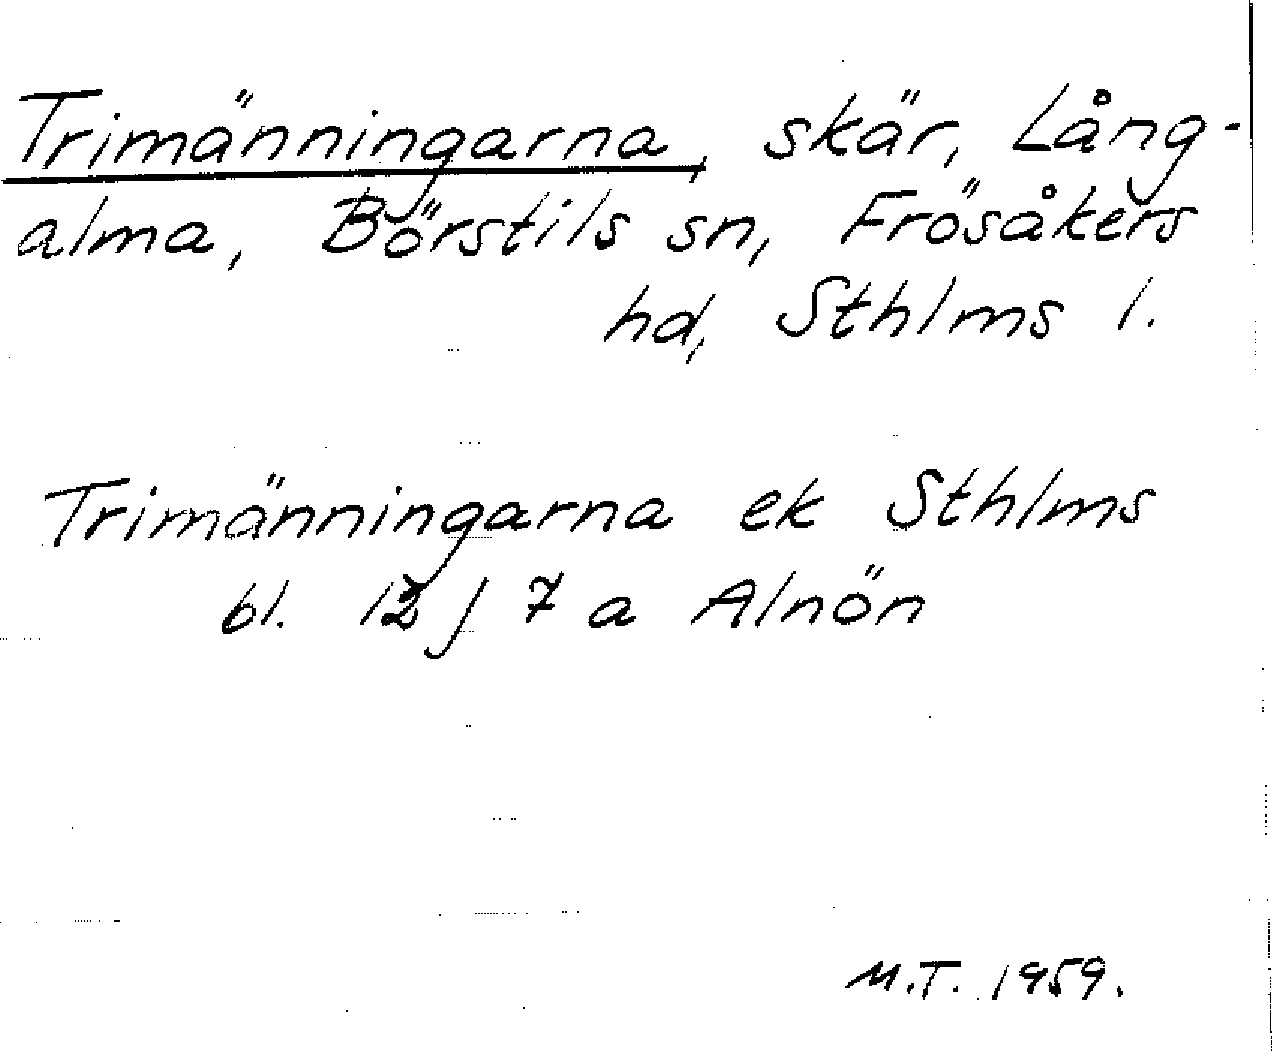 Trimänningarna, skär, Lång-
alma, Börstils sn, Frösåkers
hd, Sthlms l.
Trimänningarna ek Sthlms
bl. 12 j 7 a Alnön
M.T. 1959.